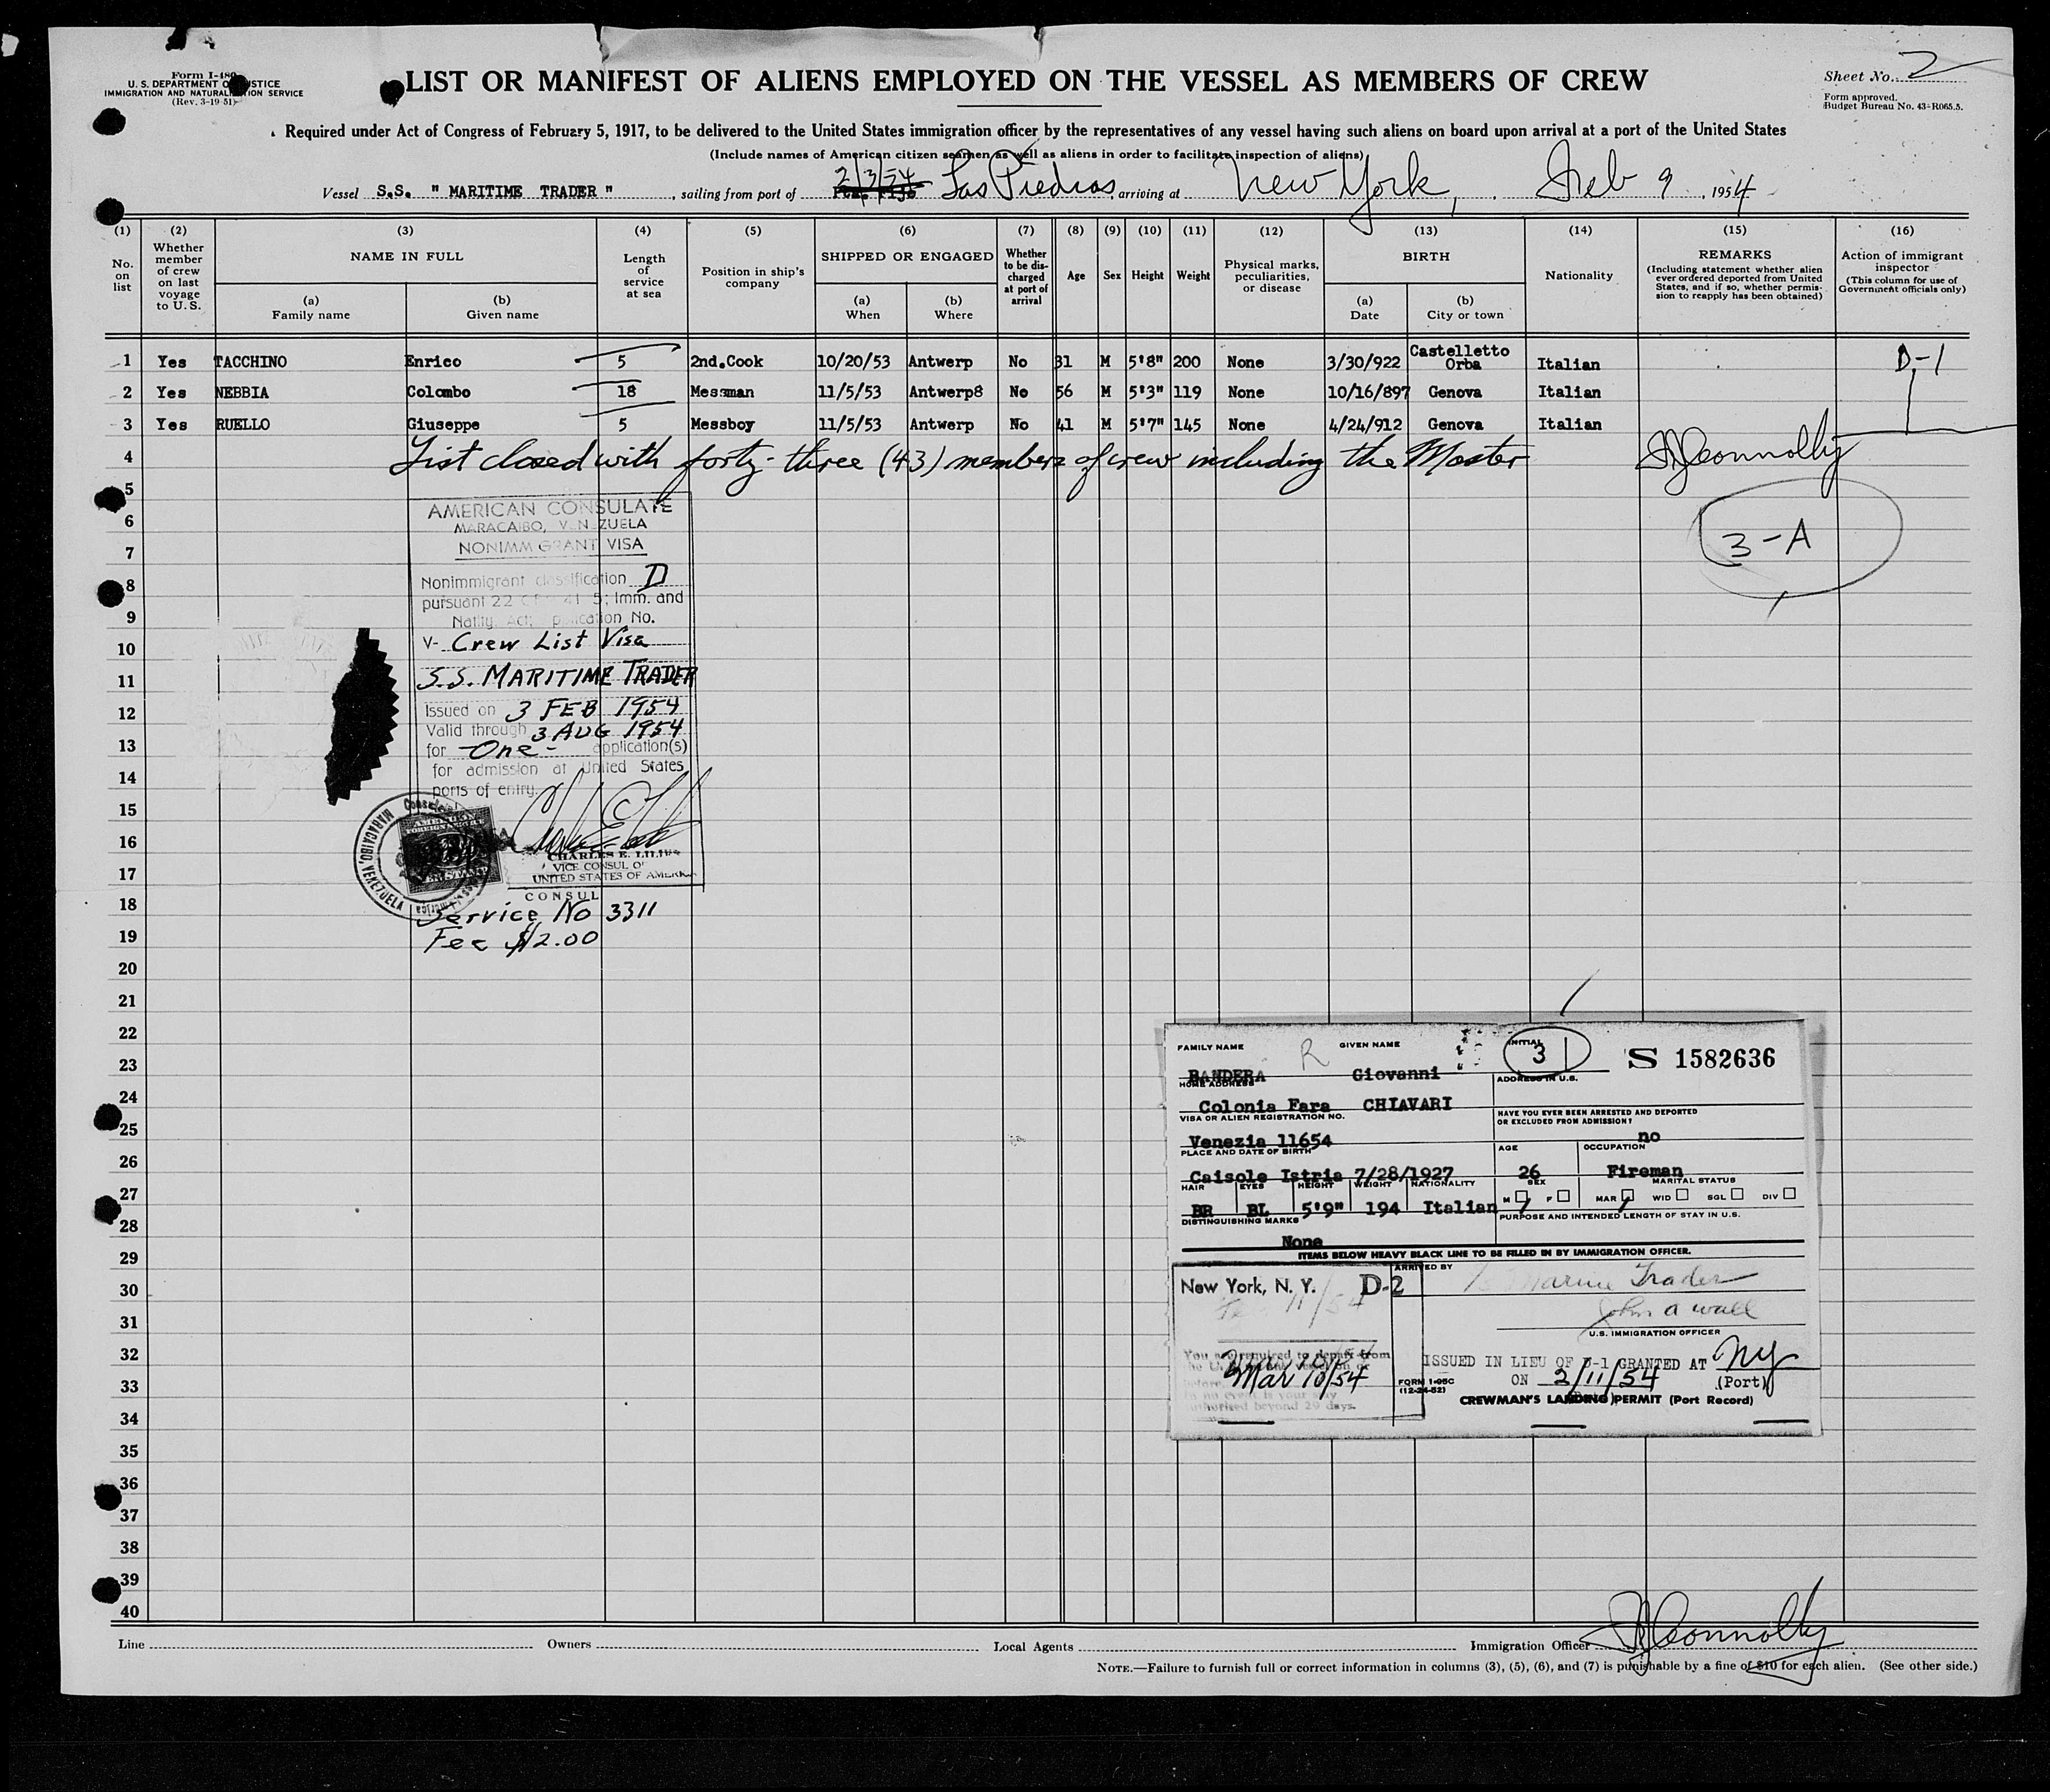 Form I-480
U. S. DEPARTMENT OF JUSTICE
IMMIGRATION AND NATURALIZATION SERVICE
(Rev. 3-19-51)
LIST OR MANIFEST OF ALIENS EMPLOYED ON THE VESSEL AS MEMBERS OF CREW
Sheet No. 2
Form approved.
Budget Bureau No. 43-R065.5.
Required under Act of Congress of February 5, 1917, to be delivered to the United States immigration officer by the representatives of any vessel having such aliens on board upon arrival at a port of the United States
(Include names of American citizen seamen as well as aliens in order to facilitate inspection of aliens)
2/3/54
Vessel S.S. " MARITIME TRADER " , sailing from port of Las Piedras, arriving at New York, Feb 9, 1954
(1) No. on list
(2) Whether member of crew on last voyage to U.S.
(3) NAME IN FULL
(a) Family name
(b) Given name
(4) Length of service at sea
(5) Position in ship's company
(6) SHIPPED OR ENGAGED
(a) When
(b) Where
(7) Whether to be discharged at port of arrival
(8) Age
(9) Sex
(10) Height
(11) Weight
(12) Physical marks, peculiarities, or disease
(13) BIRTH
(a) Date
(b) City or town
(14) Nationality
(15) REMARKS
(Including statement whether alien ever ordered deported from United States, and if so, whether permission to reapply has been obtained)
(16) Action of immigrant inspector
(This column for use of Government officials only)
1 Yes TACCHINO Enrico 5 2nd.Cook 10/20/53 Antwerp No 31 M 5'8" 200 None 3/30/922 Castelletto Orba Italian D-1
2 Yes NEBBIA Colombo 18 Messman 11/5/53 Antwerp8 No 56 M 5'3" 119 None 10/16/897 Genova Italian
3 Yes RUELLO Giuseppe 5 Messboy 11/5/53 Antwerp No 41 M 5'7" 145 None 4/24/912 Genova Italian
4 List closed with forty-three (43) members of crew including the Master Connolly
5
6
7
8
9
10
11
12
13
14
15
16
17
18
19
20
21
22
23
24
25
26
27
28
29
30
31
32
33
34
35
36
37
38
39
40
3-A
AMERICAN CONSULATE
MARACAIBO, VENEZUELA
NONIMMIGRANT VISA
Nonimmigrant classification D
pursuant 22 CFR 41.5; Imm. and
Natlty. Act; application No.
V- Crew List Visa
S.S. MARITIME TRADER
Issued on 3 FEB 1954
Valid through 3 AUG 1954
for -One- application(s)
for admission at United States
ports of entry.
CHARLES E.
VICE CONSUL OF
UNITED STATES OF AMERICA
CONSUL
MARACAIBO, VENEZUELA
AMERICAN
FOREIGN SERVICE
Service No 3311
Fee $12.00
FAMILY NAME R GIVEN NAME INITIAL 31 S 1582636
BANDERA Giovanni
HOME ADDRESS ADDRESS IN U.S.
Colonia Fara CHIAVARI
VISA OR ALIEN REGISTRATION NO. HAVE YOU EVER BEEN ARRESTED AND DEPORTED
OR EXCLUDED FROM ADMISSION?
Venezia 11654 no
PLACE AND DATE OF BIRTH AGE OCCUPATION
Caisole Istria 7/28/1927 26 Fireman
HAIR EYES HEIGHT WEIGHT NATIONALITY SEX MARITAL STATUS
M F MAR WID SGL DIV
BR BL 5'9" 194 Italian
DISTINGUISHING MARKS PURPOSE AND INTENDED LENGTH OF STAY IN U.S.
None
ITEMS BELOW HEAVY BLACK LINE TO BE FILLED IN BY IMMIGRATION OFFICER.
New York, N. Y. D-2 ARRIVED BY Marine Trader
11/54
John A Wall
U.S. IMMIGRATION OFFICER
You are required to depart from
Mar 10/54
authorized beyond 29 days.
ISSUED IN LIEU OF D-1 GRANTED AT NY
ON 2/11/54 (Port)
FORM I-95C
(12-24-52)
CREWMAN'S LANDING PERMIT (Port Record)
Line Owners Local Agents Immigration Officer Connolly
NOTE.—Failure to furnish full or correct information in columns (3), (5), (6), and (7) is punishable by a fine of $10 for each alien. (See other side.)